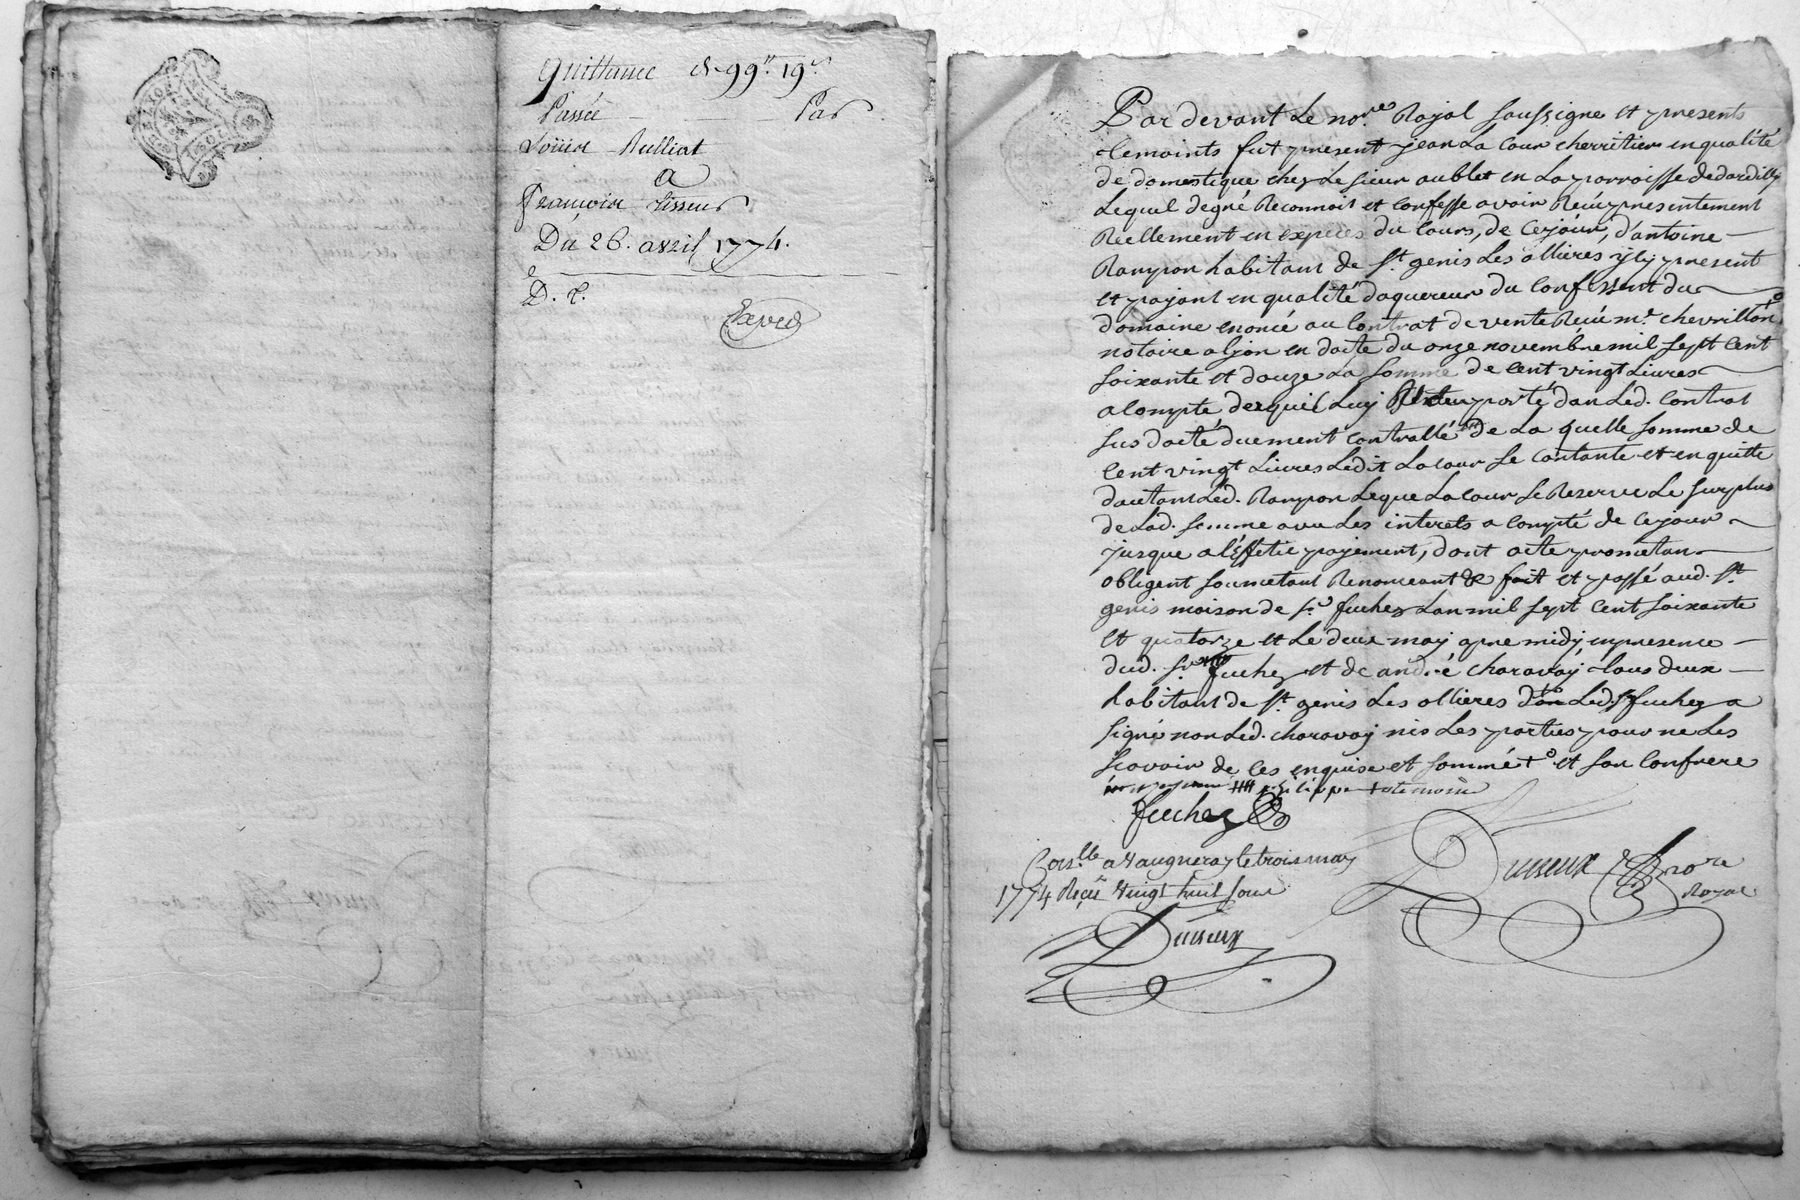 Quittance de 99ᴴ. 19ˢ.
Passée Par
Loüise Rulliat
a
François Tisseur
Du 26. avril 1774.
D. t.
Exped
Par devant Le noʳᵉ. Royal soussigne et presents
temoints fut present jean La Cour cherretier en qualité
de domestique chez Le sieur aublet en La parroisse de dardilly
Lequel de gré Reconnoit et confesse avoir Recu presentement
Reellement en expeces du Cours, de Ce jour, d'antoine
Rampon habitant de Sᵗ. genis Les ollieres ycy present
et payant en qualité daquereur du
domaine enoncé au Contrat de vente Recu mᵉ. chevrillon
notaire a Lyon en datte du onze novembre mil sept Cent
soixante et douze La somme de Cent vingt Livres
a Compte de ce quil Luy porté dan Led. Contrat
sus datté duement Contrallé de La quelle somme de
Cent vingt Livres Ledit Lacour se Contante et en quitte
dautant Led. Rampon Le que Lacour se Reserve Le surplus
de Lad. somme avec Les interets a Compté de Ce jour
jusque a L'effetif payement, dont acte prometan
obligent soumetant Renonceant &c fait et passé aud. Sᵗ
genis maison de sʳ. fuchez Lan mil sept Cent soixante
et quatorze et Le deux may apre midy en presence
dud. Sʳ fuchez et de andré charavay tous deux
habitant de Sᵗ. genis Les ollieres Led. Sʳ fuchez a
signé non Led. charavay nis Les parties pour ne Les
scavoir de Ces enquise et sommé et son Confrere
fuchez
Conᵗˡˡᵉ a Vaugneray le trois may
1774 Reçu Vingt huit sous
Dusseux
Dusseux noʳᵉ
Royal